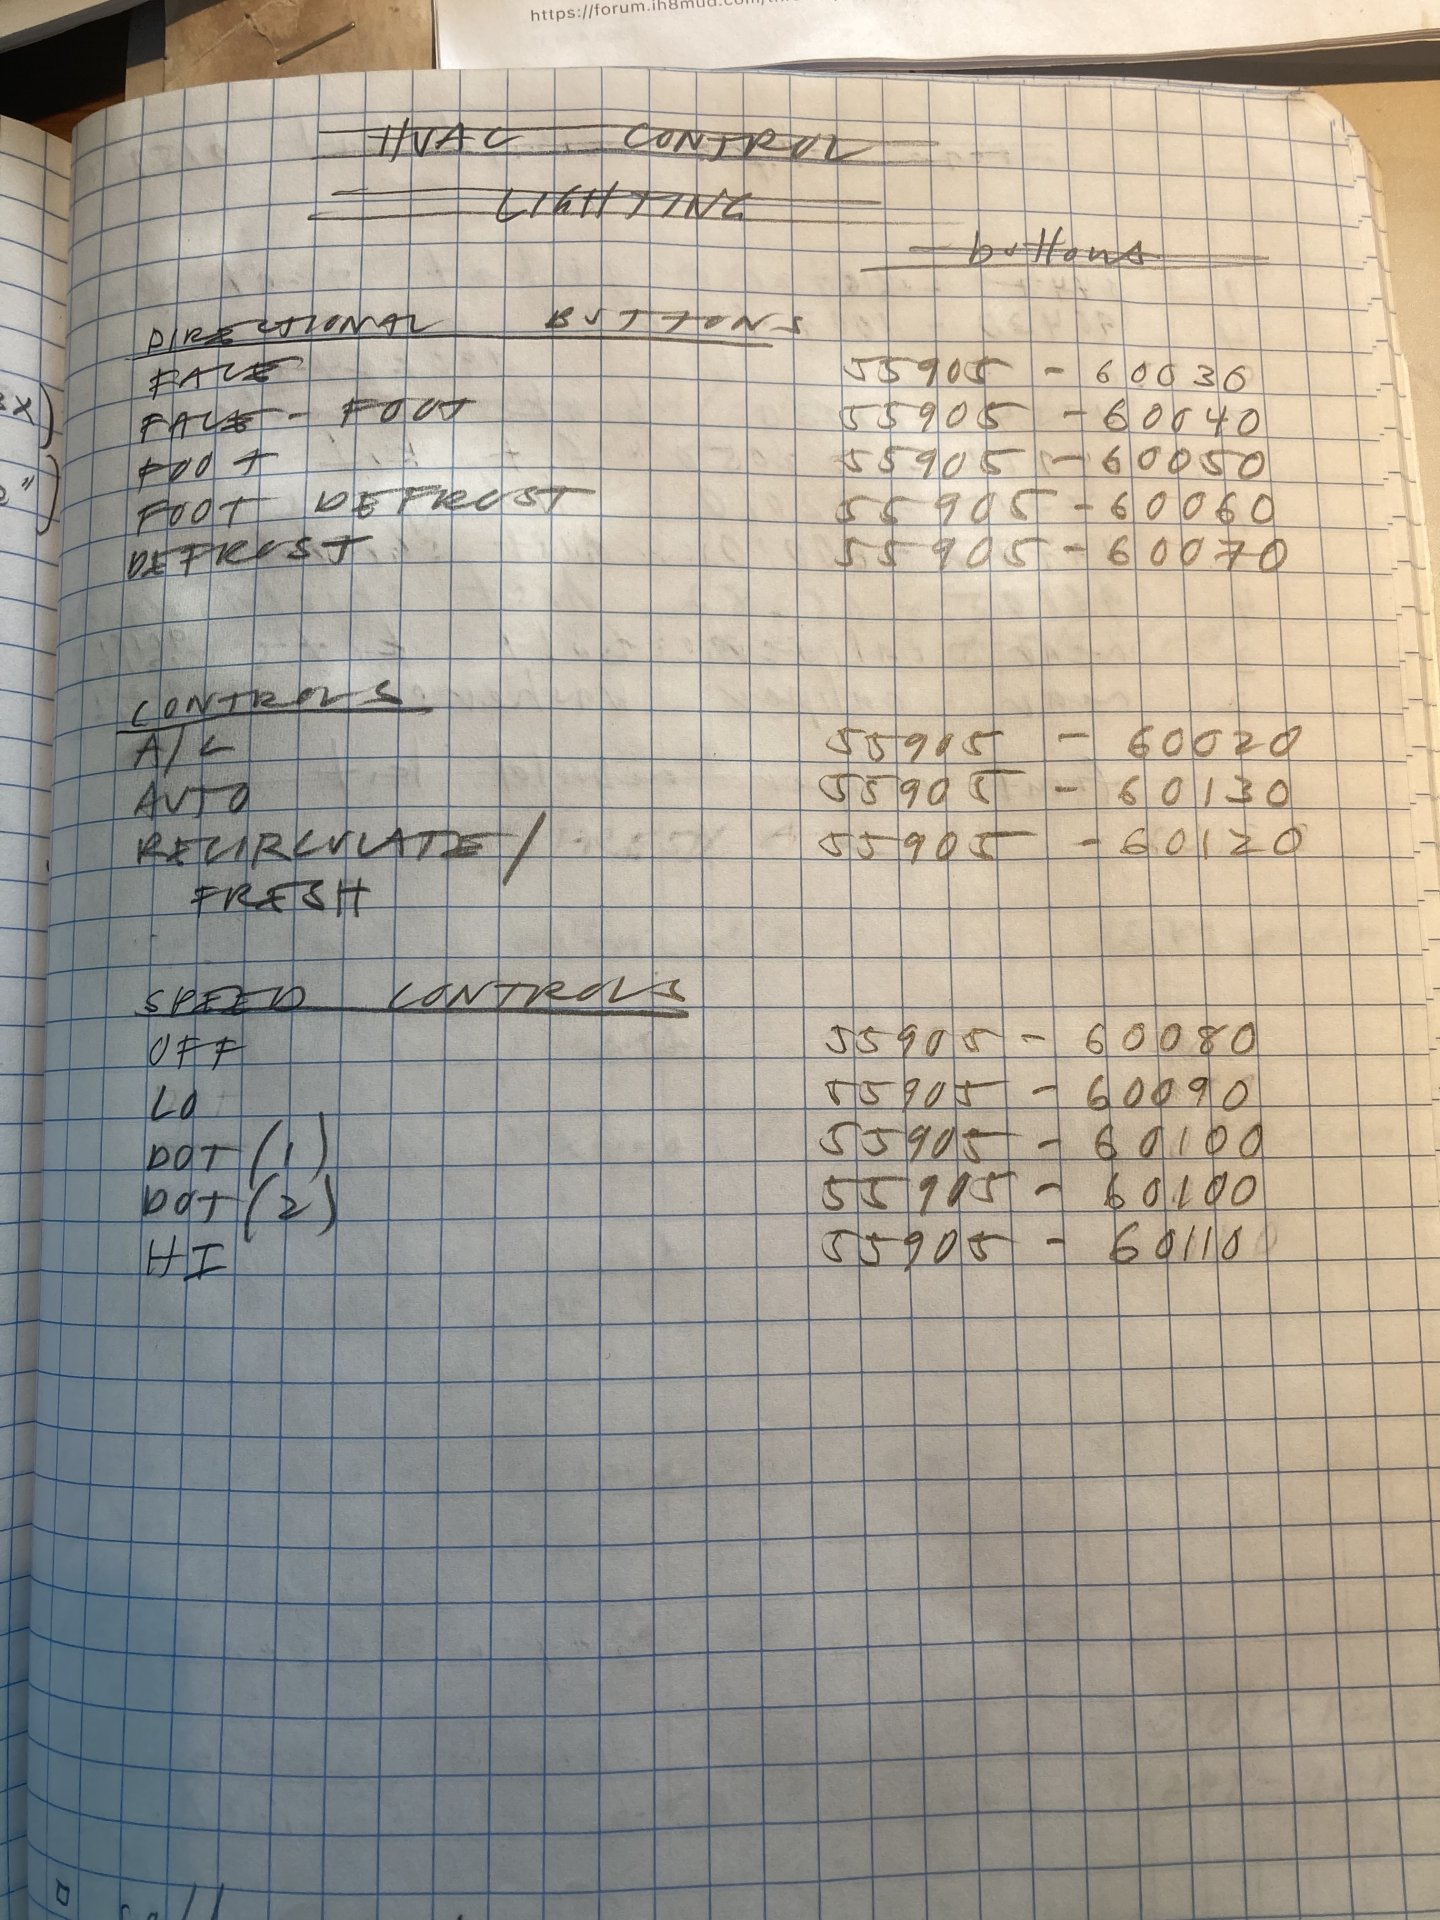 https://forum.ih8mud.com/
HVAC CONTROL
LIGHTING
buttons
DIRECTIONAL BUTTONS
FACE 55905 - 60030
FACE - FOOT 55905 - 60040
FOOT 55905 - 60050
FOOT DEFROST 55905 - 60060
DEFROST 55905 - 60070
CONTROLS
A/C 55905 - 60020
AUTO 55905 - 60130
RECIRCULATE / 55905 - 60120
FRESH
SPEED CONTROLS
OFF 55905 - 60080
LO 55905 - 60090
DOT (1) 55905 - 60100
DOT (2) 55905 - 60100
HI 55905 - 60110